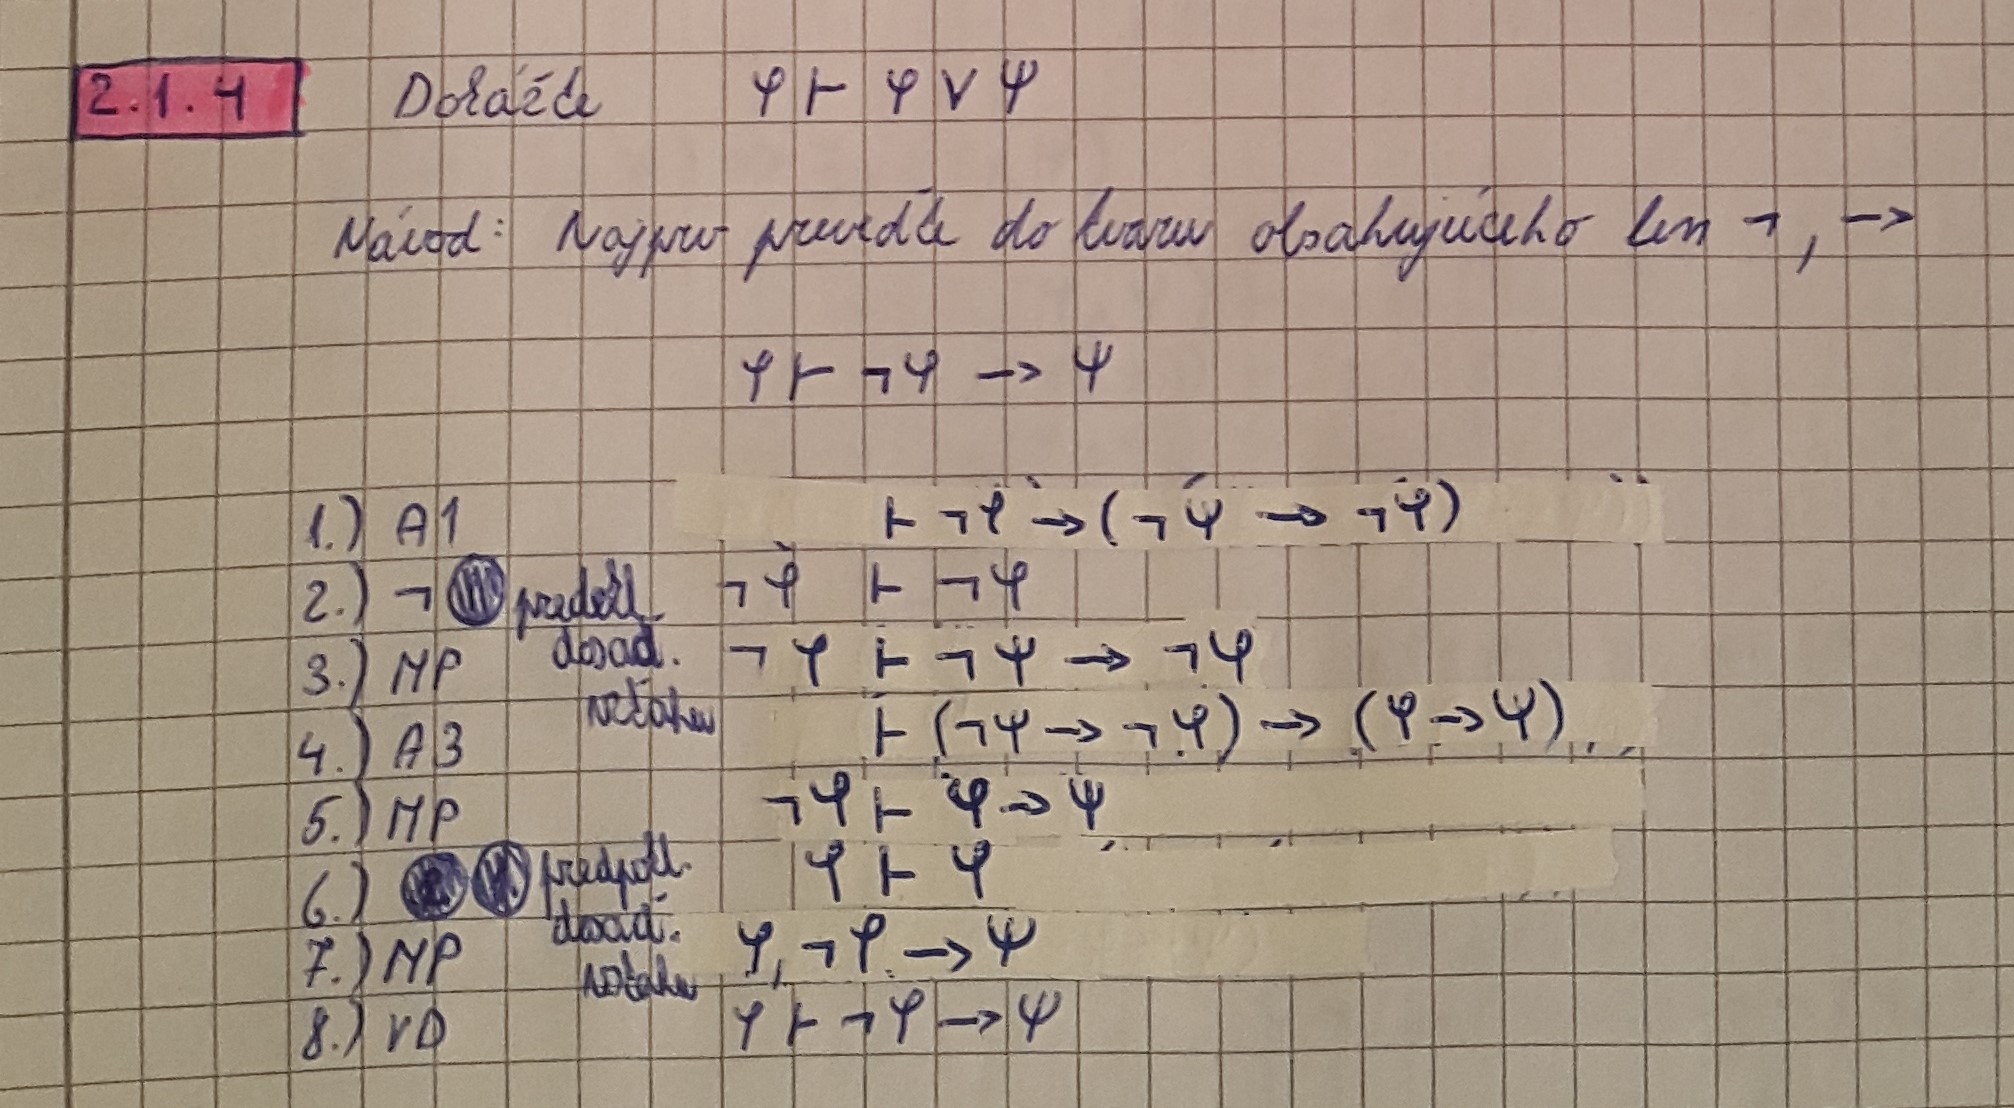 2.1.4 Dokážte φ ⊢ φ ∨ ψ
Návod: Najprv preveďte do tvaru obsahujúceho len ¬, →
φ ⊢ ¬φ → ψ
1.) A1 ⊢ ¬φ → (¬ψ → ¬φ)
2.) ¬ ¬φ ⊢ ¬φ
3.) MP dosad. ¬φ ⊢ ¬ψ → ¬φ
vzťahu
4.) A3 ⊢ (¬ψ → ¬φ) → (φ → ψ)
5.) MP ¬φ ⊢ φ → ψ
6.) predpokl. φ ⊢ φ
dosad.
7.) MP φ, ¬φ → ψ
vzťahu
8.) VD φ ⊢ ¬φ → ψ